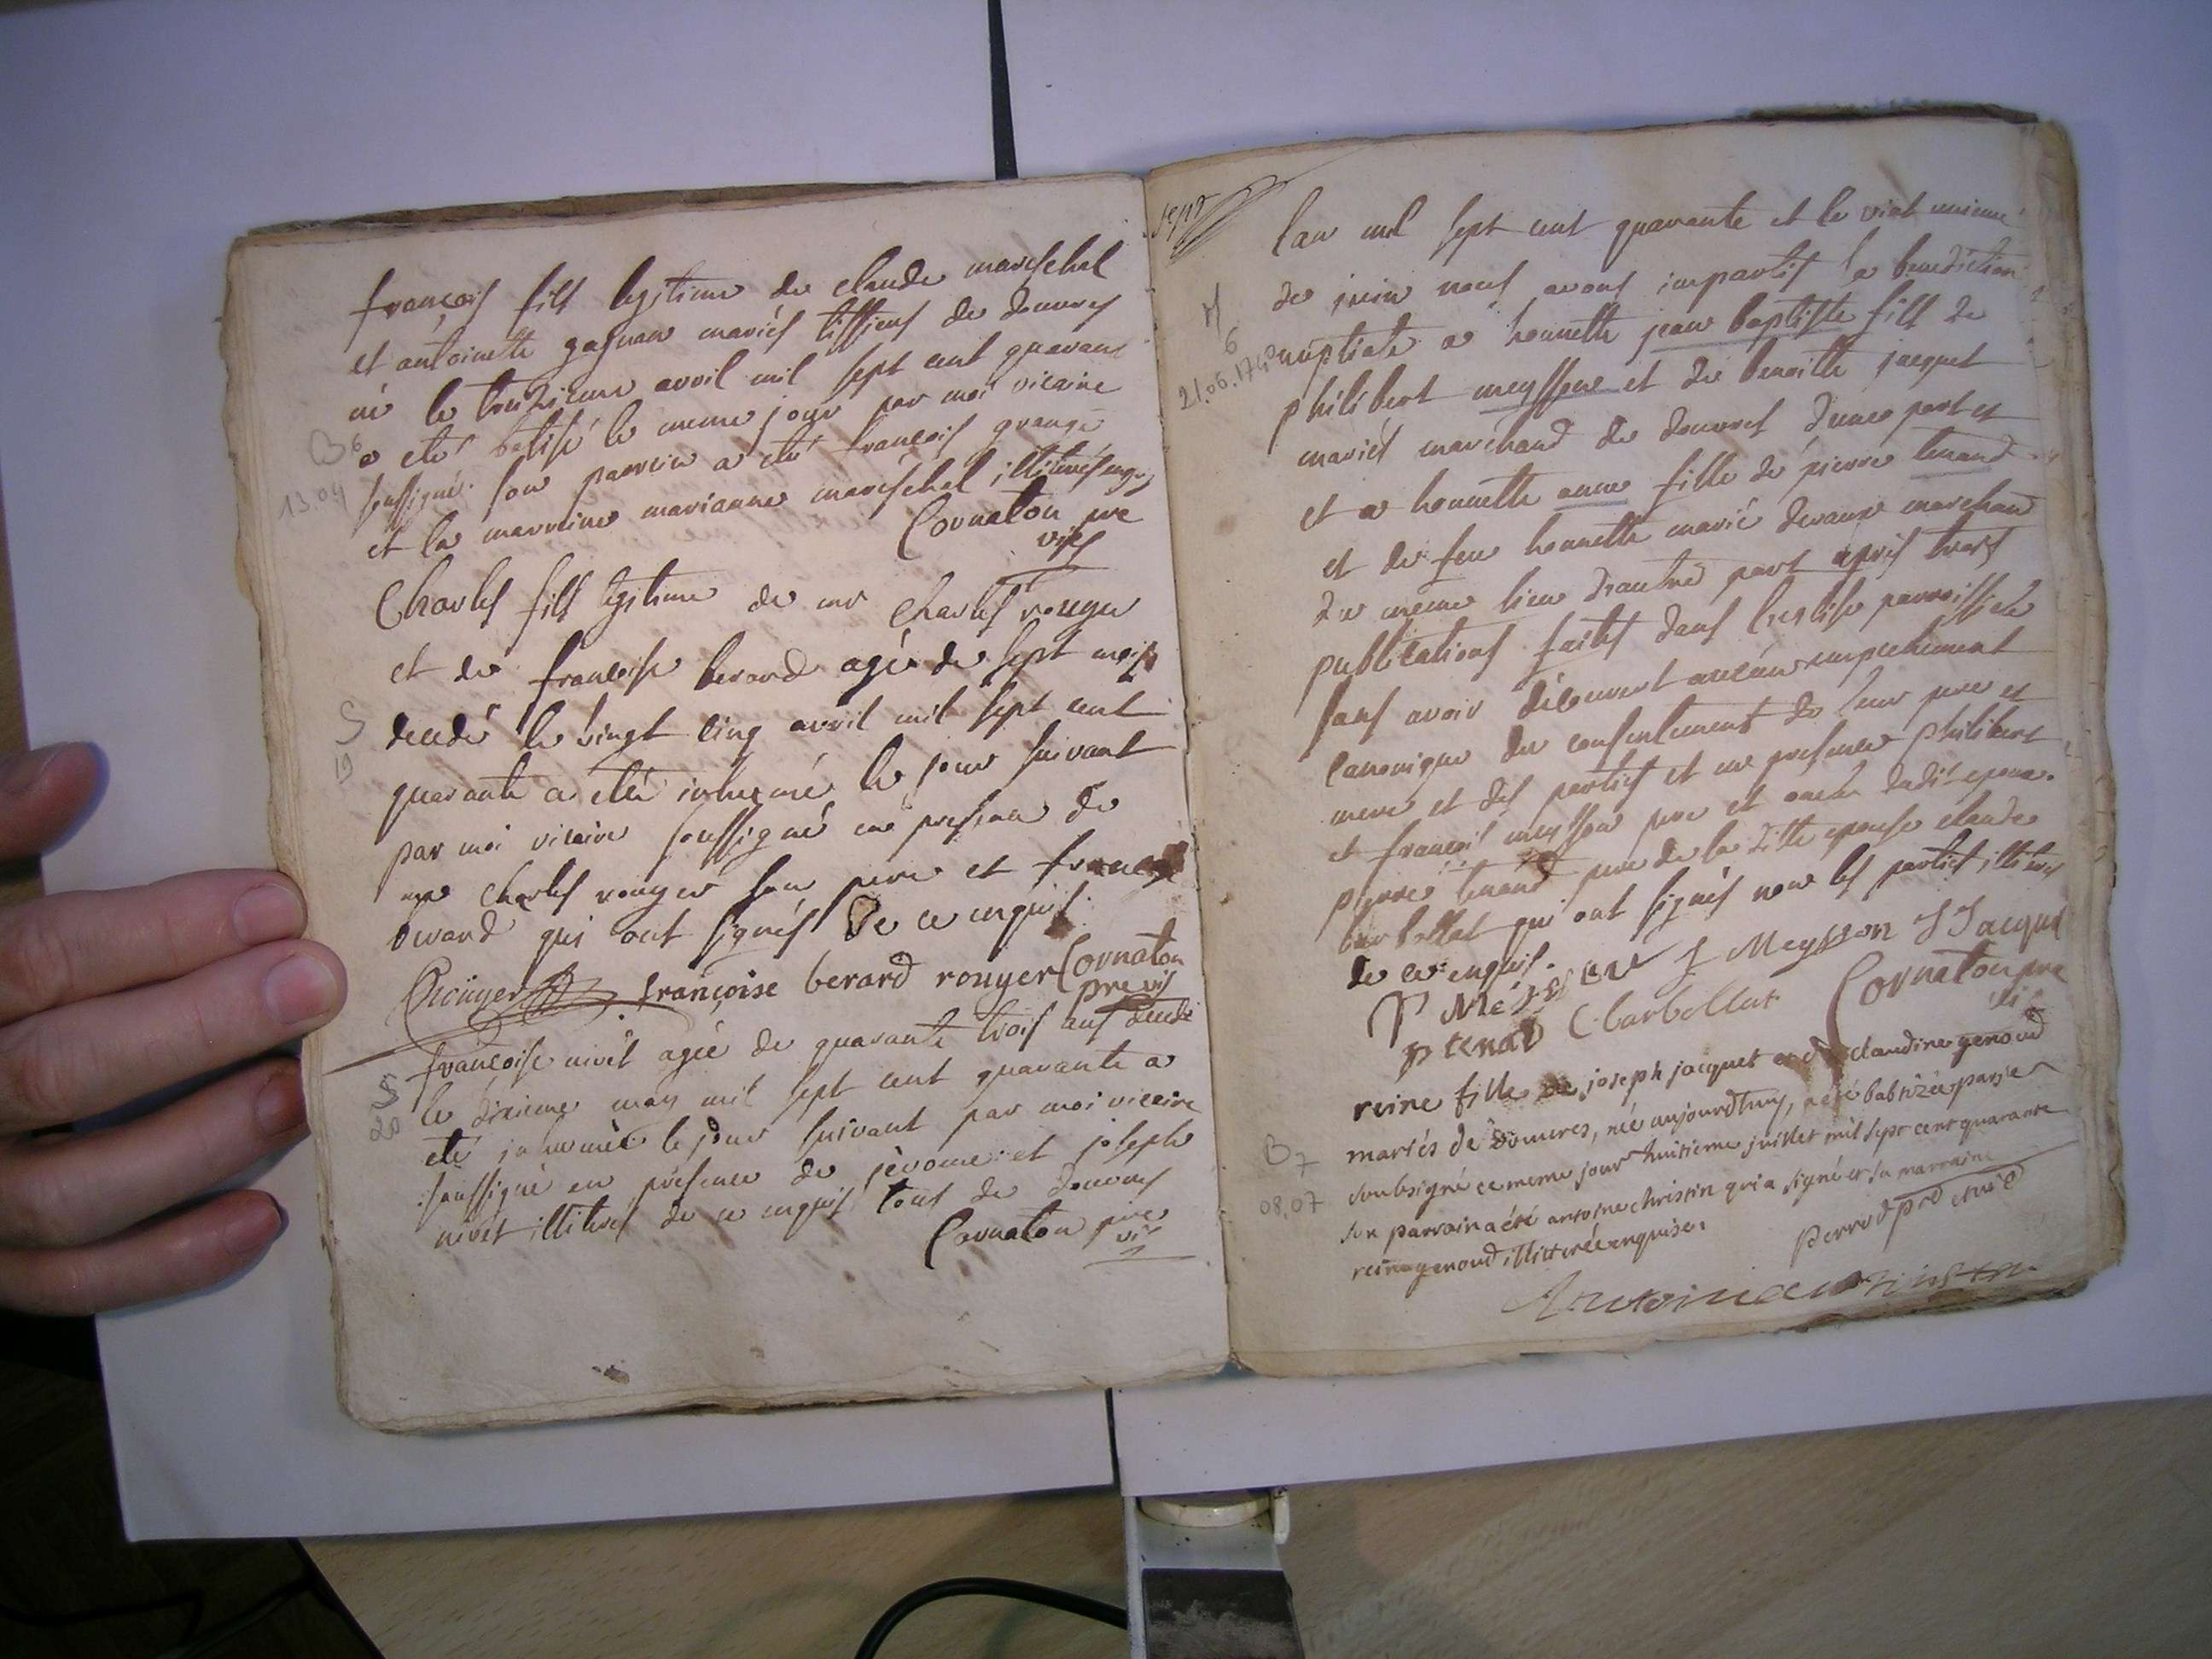 françois fils legitime de claude mareschal
et antoinette gagneur mariés tissiers de douvres
né le treizieme avril mil sept cent quarante
a eté batisé le meme jour par moi vicaire
B 6
13.04
soussigné. son parrein a eté françois grange
et la marreine marianne mareschal illiterés enquis
Cornaton pre
vic
Charles fils legitime de mr Charles rouyer
et de francoise berard agée de sept mois
decedé le vingt cinq avril mil sept cent
S
19
quarante a eté inhumé le jour suivant
par moi vicaire soussigné en presence de
mr Charles rouyer son pere et
berard qui ont signés de ce enquis.
Rouyer françoise berard rouyer Cornaton
pre vic
françoise nivet agée de quarante trois ans decedé
le may mil sept cent quarante a
S
20
eté inhumée le jour suivant par moi vicaire
soussigné en présence de jérome et joseph
nivet illiterés de ce enquis tous de douvres
Cornaton pre
vic
sept
lan mil sept cent quarante et le vint unieme
de juin nous avons impartis la benediction
M
6
21.06.1740
nuptiale a honnette jean baptiste fils de
philibert meyssson et de benoitte jacquet
mariés marchand de douvres d'une part et
et a honnette anne fille de pierre tenand
et de feue honnette marie devaux marchand
du meme lieu d'autre part après trois
publications faites dans l'eglise parroissiale
sans avoir découvert aucun empechement
canonique du consentement de leur pere et
mere et des parties et en presence philibert
et françois meysson pere et oncle dudit epoux.
pierre tenand pere de la ditte epouse claude
barbollat qui ont signés non les parties illiterés
de ce enquis.
P Meysson J Meysson J Jacquet
p tenad C barbollat Cornaton pre
vic
reine fille de joseph jacquet et de claudine genoud
mariés de douvres, née aujourdhuy, a été babtizée par je
B 7
08.07
soubsigné ce meme jour huitieme juillet mil sept cent quarante
son parrain a été antoine christin qui a signé et sa marraine
reine genoud illitterée enquise.
Perrod pre et vic
Antoine christin